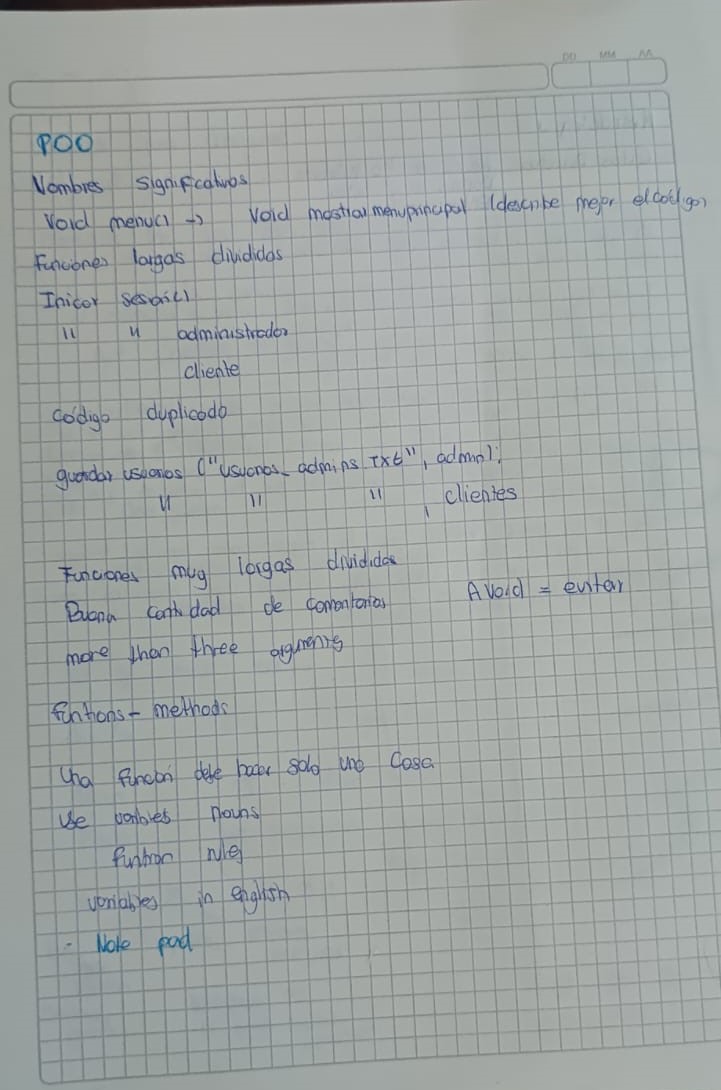 DD MM AA
POO
Nombres significativos
Void menu() → Void mostrarmenuprincipal (describe mejor el código)
Funciones largas divididas
Inicar sesión()
" " administrador
cliente
Código duplicado
guardar usuarios ("usuarios_admins.txt", admin);
" " " , clientes
Funciones muy largas divididas
Buena cantidad de comentarios Avoid = evitar
more than three arguments
funtions - methods
Una función debe hacer solo una cosa
Use variables nouns
funtion
variables in english
- Note pad